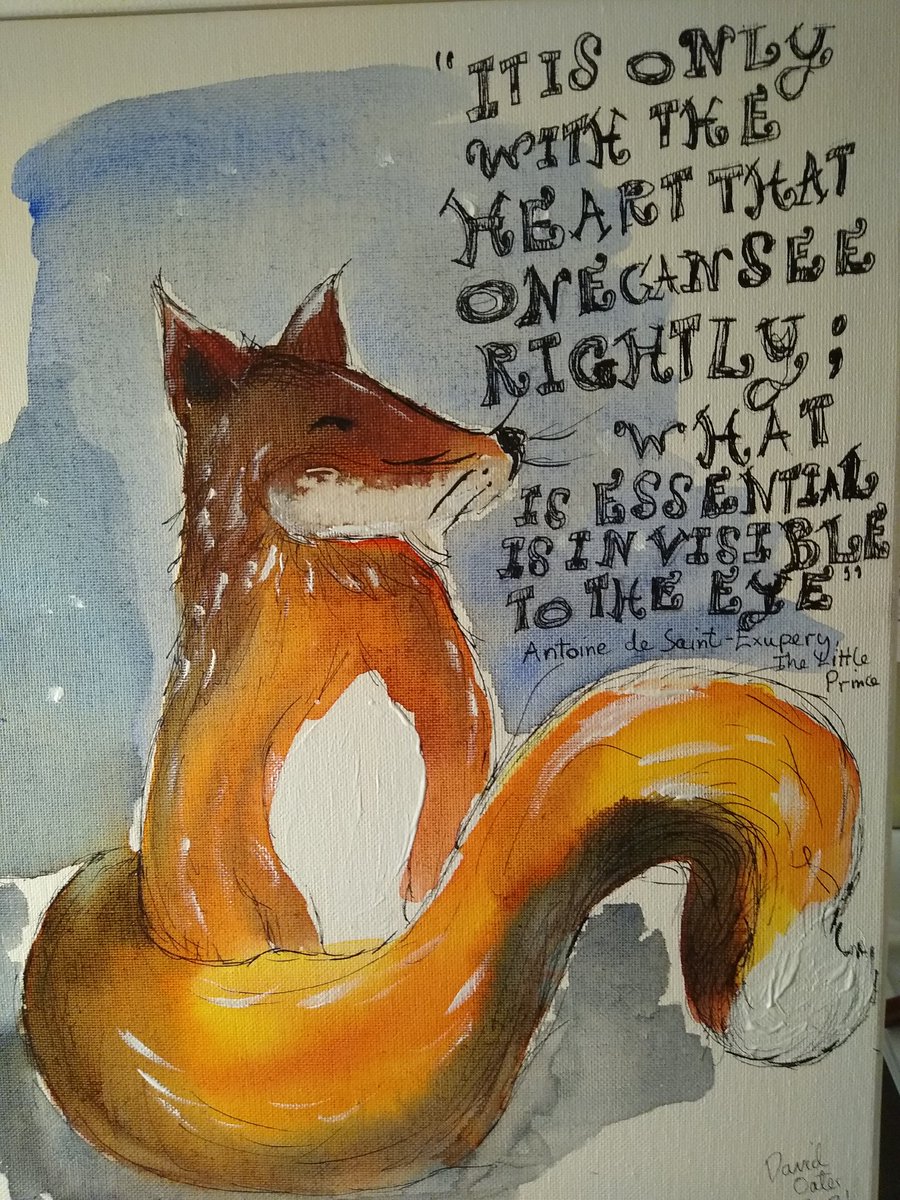 "IT IS ONLY
WITH THE
HEART THAT
ONE CAN SEE
RIGHTLY;
WHAT
IS ESSENTIAL
IS INVISIBLE
TO THE EYE"
Antoine de Saint-Exupery,
The Little
Prince
David
Oates